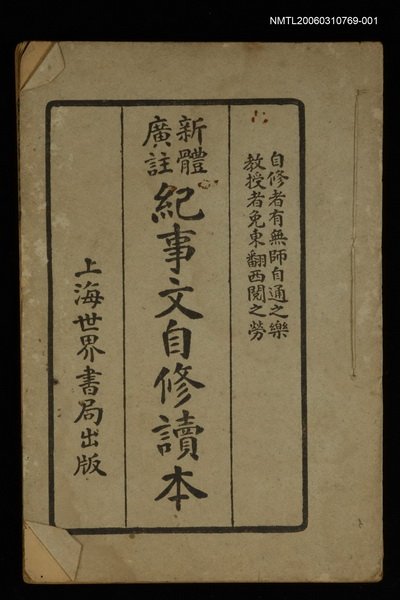 NMTL20060310769-001
自修者有無師自通之樂
教授者免東翻西閱之勞
新體
廣註
紀事文自修讀本
上海世界書局出版